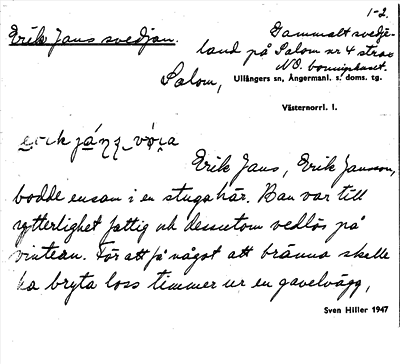 1-2.
Erik Jans svedjan.
Gammalt svedje-
land på Salom nr 4 strax
NO. boningshuset.
Salom,
Ullångers sn, Ångermanl. s. doms. tg.
Västernorrl. l.
Erik Jans, Erik Jansson,
bodde ensam i en stuga här. Han var till
ytterlighet fattig och dessutom vedlös på
vintern. För att få något att bränna skulle
ha bryta loss timmer ur en gavelvägg,
Sven Hiller 1947